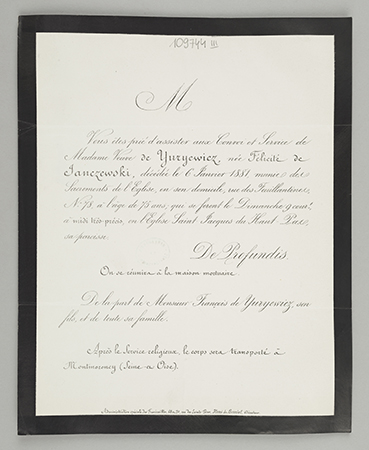 109744
M
Vous êtes prié d'assister aux Convoi et Service de
Madame Veuve de Yuryewicz, née Félicité de
Janczewski, décédée le 6 Janvier 1881, munie des
Sacrements de l'Eglise, en son domicile, rue des Feuillantines,
No 78, à l'âge de 75 ans, qui se feront le Dimanche 9 cour.t
à midi très-précis, en l'Eglise Saint Jacques du Haut Pas,
sa paroisse.
De Profundis.
On se réunira à la maison mortuaire.
De la part de Monsieur François de Yuryewicz, son
fils, et de toute sa famille.
Après le Service religieux, le corps sera transporté à
Montmorency (Seine et Oise).